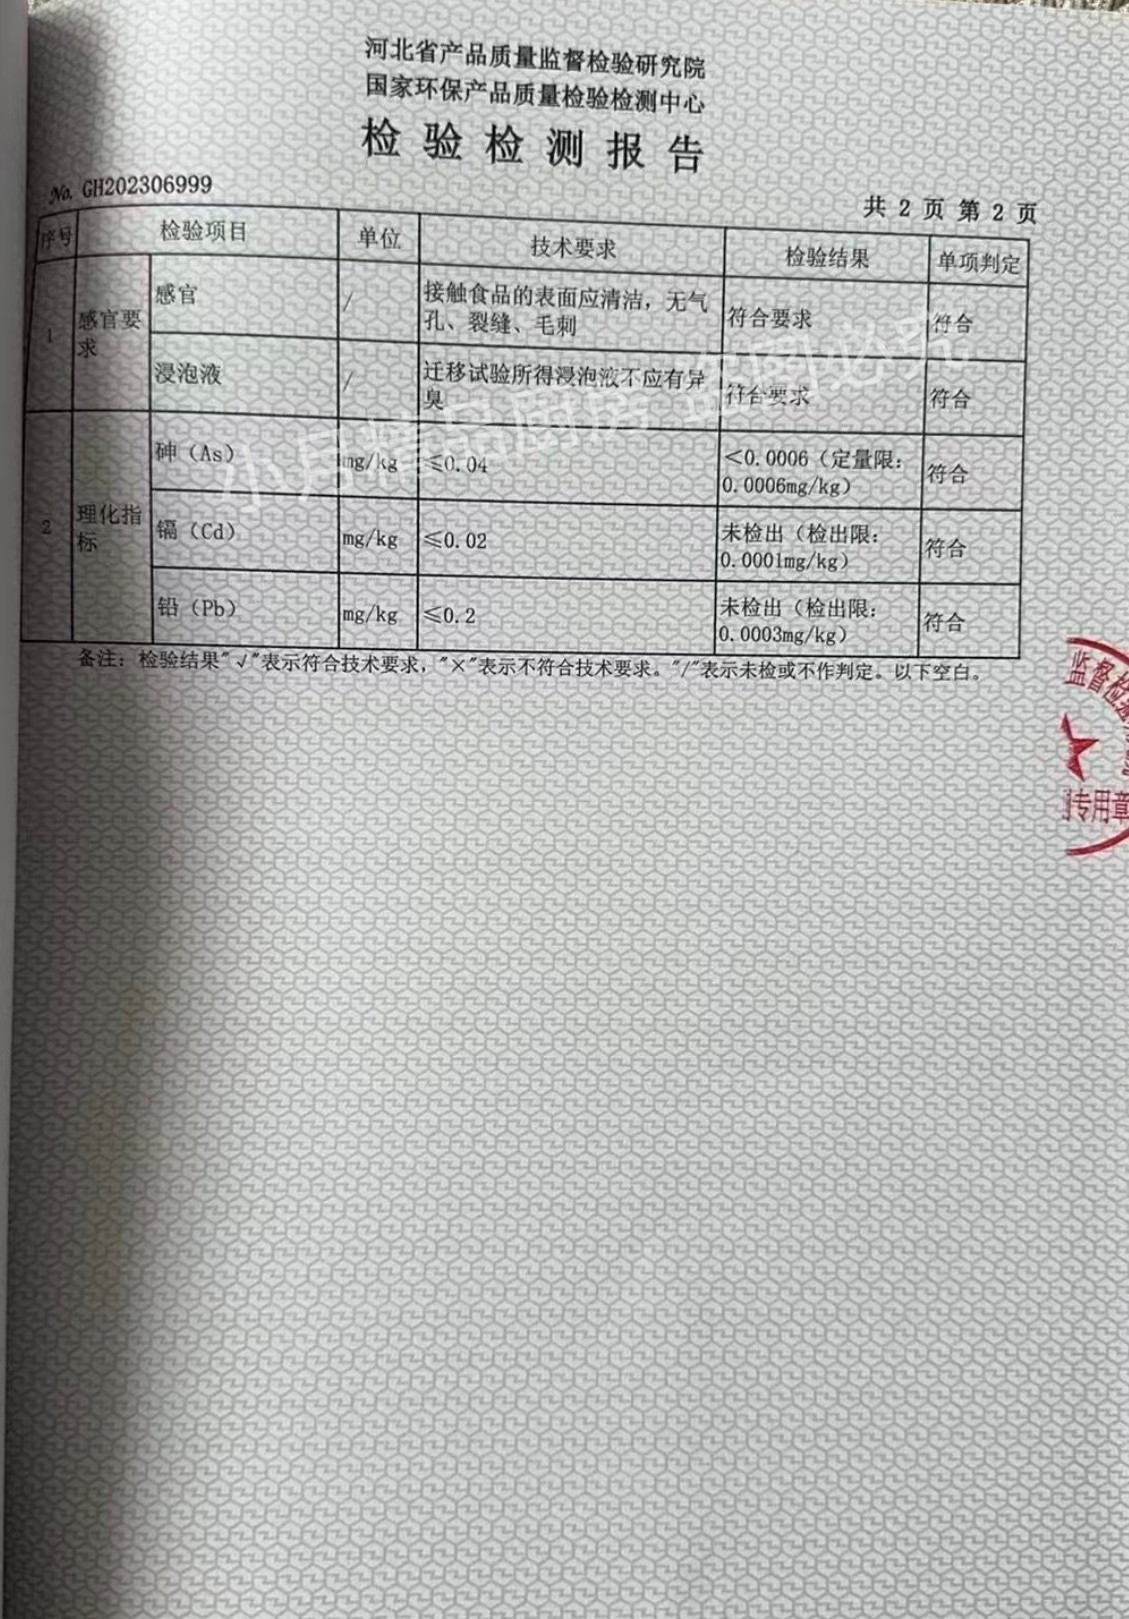 河北省产品质量监督检验研究院
国家环保产品质量检验检测中心
检验检测报告
No. GH202306999
共 2 页 第 2 页
序号 检验项目 单位 技术要求 检验结果 单项判定
1 感官要求 感官 / 接触食品的表面应清洁，无气孔、裂缝、毛刺 符合要求 符合
浸泡液 / 迁移试验所得浸泡液不应有异臭 符合要求 符合
2 理化指标 砷（As） mg/kg ≤0.04 <0.0006（定量限：0.0006mg/kg） 符合
镉（Cd） mg/kg ≤0.02 未检出（检出限：0.0001mg/kg） 符合
铅（Pb） mg/kg ≤0.2 未检出（检出限：0.0003mg/kg） 符合
备注：检验结果"√"表示符合技术要求，"×"表示不符合技术要求。"/"表示未检或不作判定。以下空白。
小月精品厨房 盗图必究
监督检验
专用章